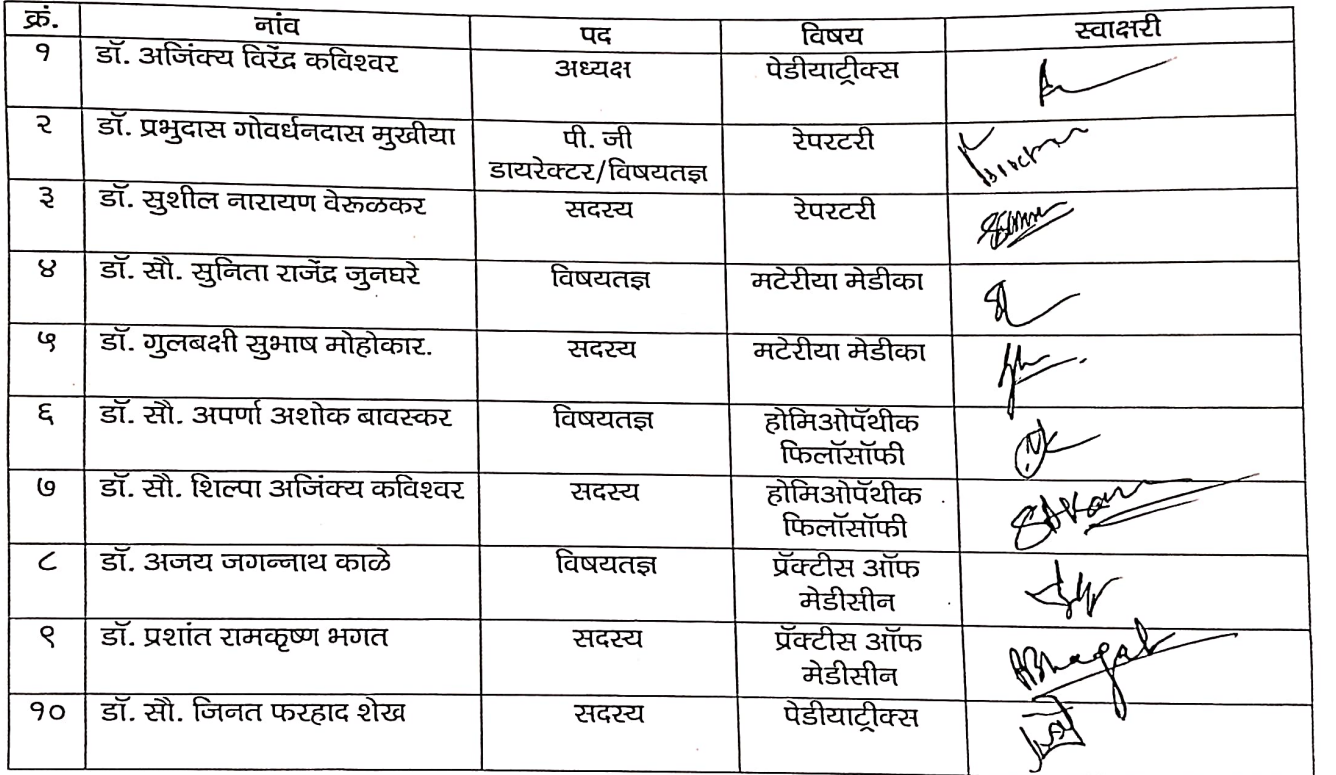 क्रं. नांव पद विषय स्वाक्षरी
१ डॉ. अजिंक्य विरेंद्र कविश्वर अध्यक्ष पेडीयाट्रीक्स
२ डॉ. प्रभुदास गोवर्धनदास मुखीया पी. जी रेपरटरी
डायरेक्टर/विषयतज्ञ
३ डॉ. सुशील नारायण वेरूळकर सदस्य रेपरटरी
४ डॉ. सौ. सुनिता राजेंद्र जुनघरे विषयतज्ञ मटेरीया मेडीका
५ डॉ. गुलबक्षी सुभाष मोहोकार. सदस्य मटेरीया मेडीका
६ डॉ. सौ. अपर्णा अशोक बावस्कर विषयतज्ञ होमिओपॅथीक
फिलॉसॉफी
७ डॉ. सौ. शिल्पा अजिंक्य कविश्वर सदस्य होमिओपॅथीक
फिलॉसॉफी
८ डॉ. अजय जगन्नाथ काळे विषयतज्ञ प्रॅक्टीस ऑफ
मेडीसीन
९ डॉ. प्रशांत रामकृष्ण भगत सदस्य प्रॅक्टीस ऑफ
मेडीसीन
१० डॉ. सौ. जिनत फरहाद शेख सदस्य पेडीयाट्रीक्स